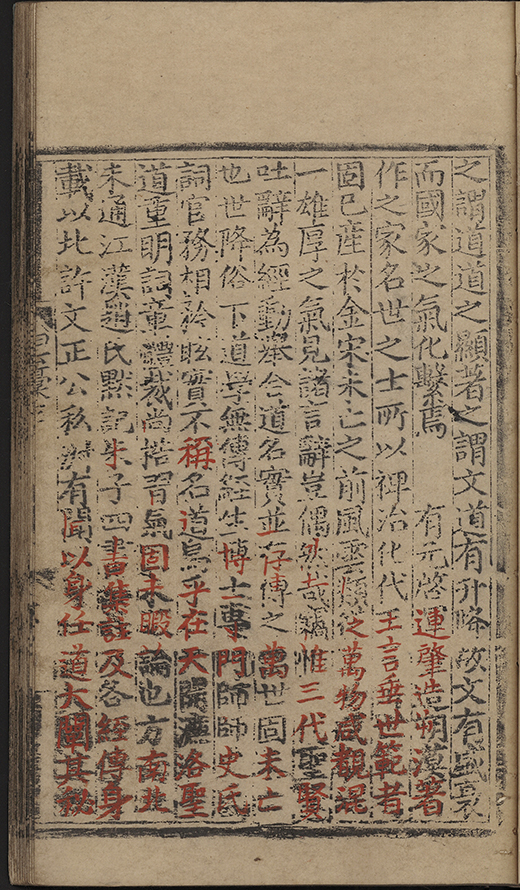 之謂道道之顯著之謂文道有升降故文有盛衰
而國家之氣化繫焉　有元啓運肇造朔漠著
作之家名世之士所以裨治化代王言垂世範者
固已産於金宋未亡之前風雲類從之萬物咸覩混
一雄厚之氣見諸言辭豈偶然哉竊惟三代聖賢
吐辭為經動舉合道名實並存傳之萬世固未亡
也世降俗下道學無傳經生博士專門師師史氏
詞官務相矜眩實不稱名道烏乎在天開濂洛聖
道重明詞章體裁尚搭習氣固未暇論也方南北
未通江漢趙氏默記朱子四書集註及各經傳身
載以北許文正公私淑有聞以身任道大闡其秘